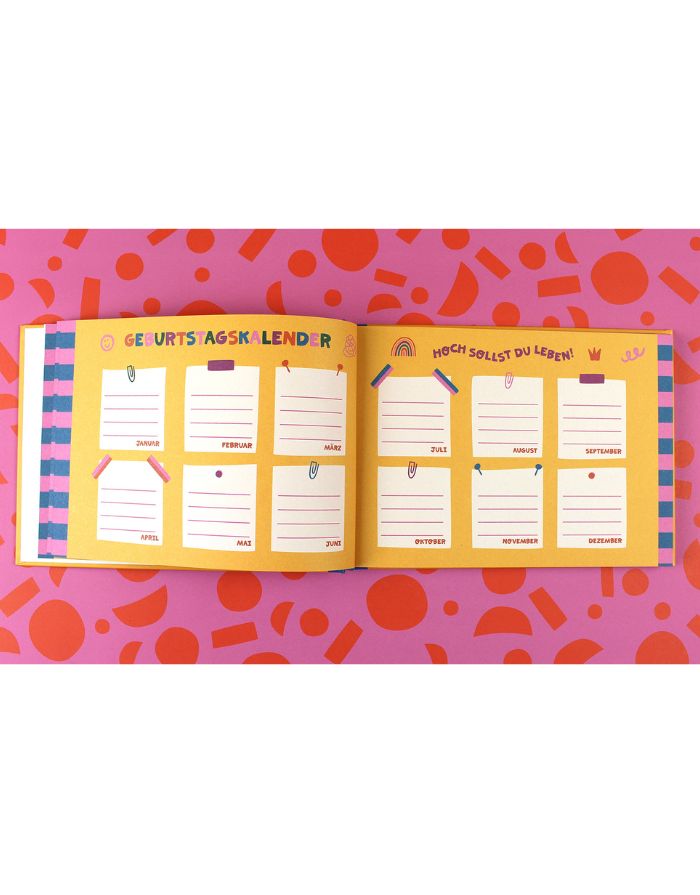 GEBURTSTAGSKALENDER
JANUAR
FEBRUAR
MÄRZ
APRIL
MAI
JUNI
HOCH SOLLST DU LEBEN!
JULI
AUGUST
SEPTEMBER
OKTOBER
NOVEMBER
DEZEMBER